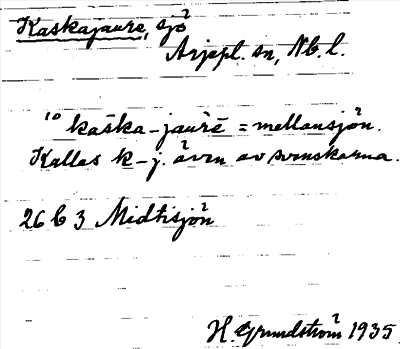 Kaskajaure, sjö
Arjepl. sn, Nb. l.
10 kaska-jaurē = mellansjön.
Kallas k-j. även av svenskarna.
26 C 3 Midtisjön
H. Grundström 1935